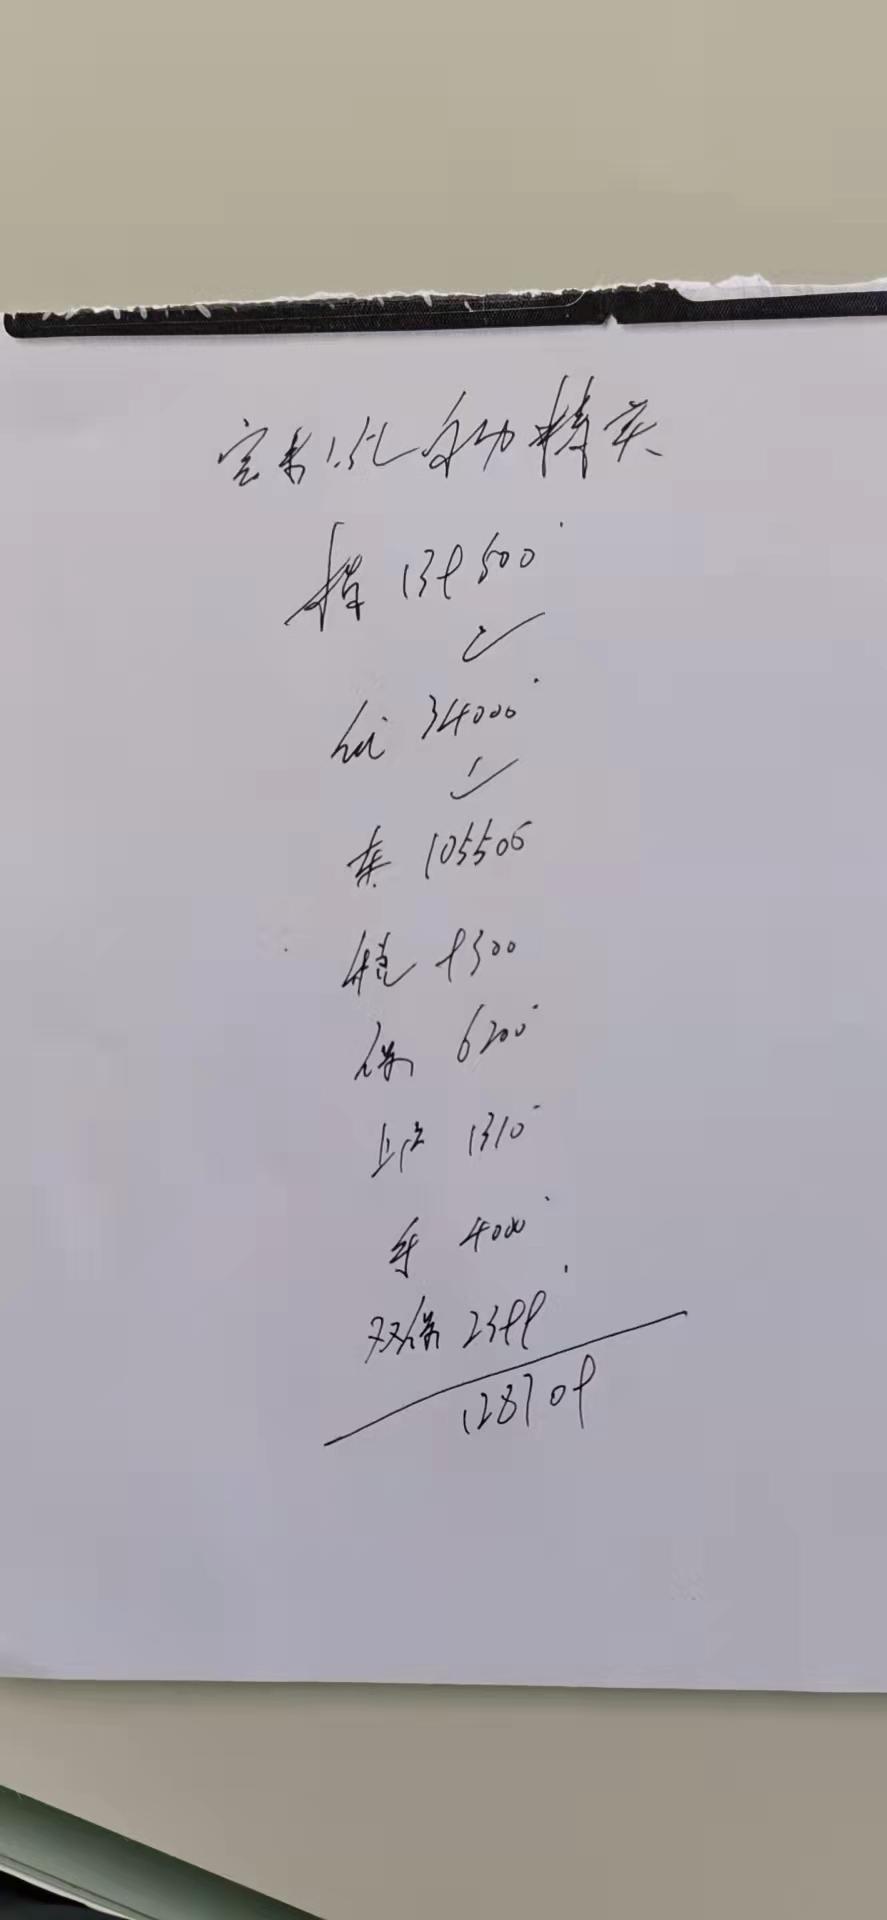 宝来1.5L 自动精英
指 139500
优 34000
车 105500
税 9300
保 6200
上户 1310
手 4000
双保 2399
128709